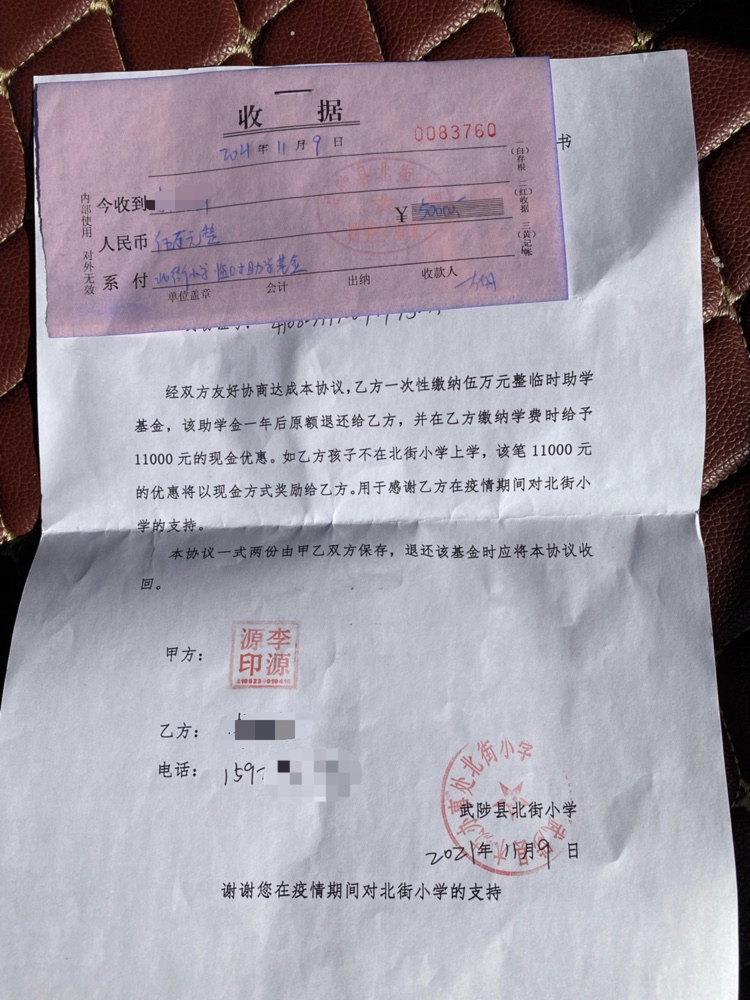 收 据
0083760
2021年11月9日
书
今收到
人民币 伍万元整
¥50000
系付 北街小学临时助学基金
单位盖章 会计 出纳 收款人
内部使用 对外无效
一(白)存根 二(红)收据 三(黄)记账
经双方友好协商达成本协议,乙方一次性缴纳伍万元整临时助学
基金,该助学金一年后原额退还给乙方,并在乙方缴纳学费时给予
11000 元的现金优惠。如乙方孩子不在北街小学上学,该笔 11000 元
的优惠将以现金方式奖励给乙方。用于感谢乙方在疫情期间对北街小
学的支持。
本协议一式两份由甲乙双方保存,退还该基金时应将本协议收
回。
甲方:
源李
印源
乙方:
电话: 159
武陟县北街小学
2021年11月9日
谢谢您在疫情期间对北街小学的支持